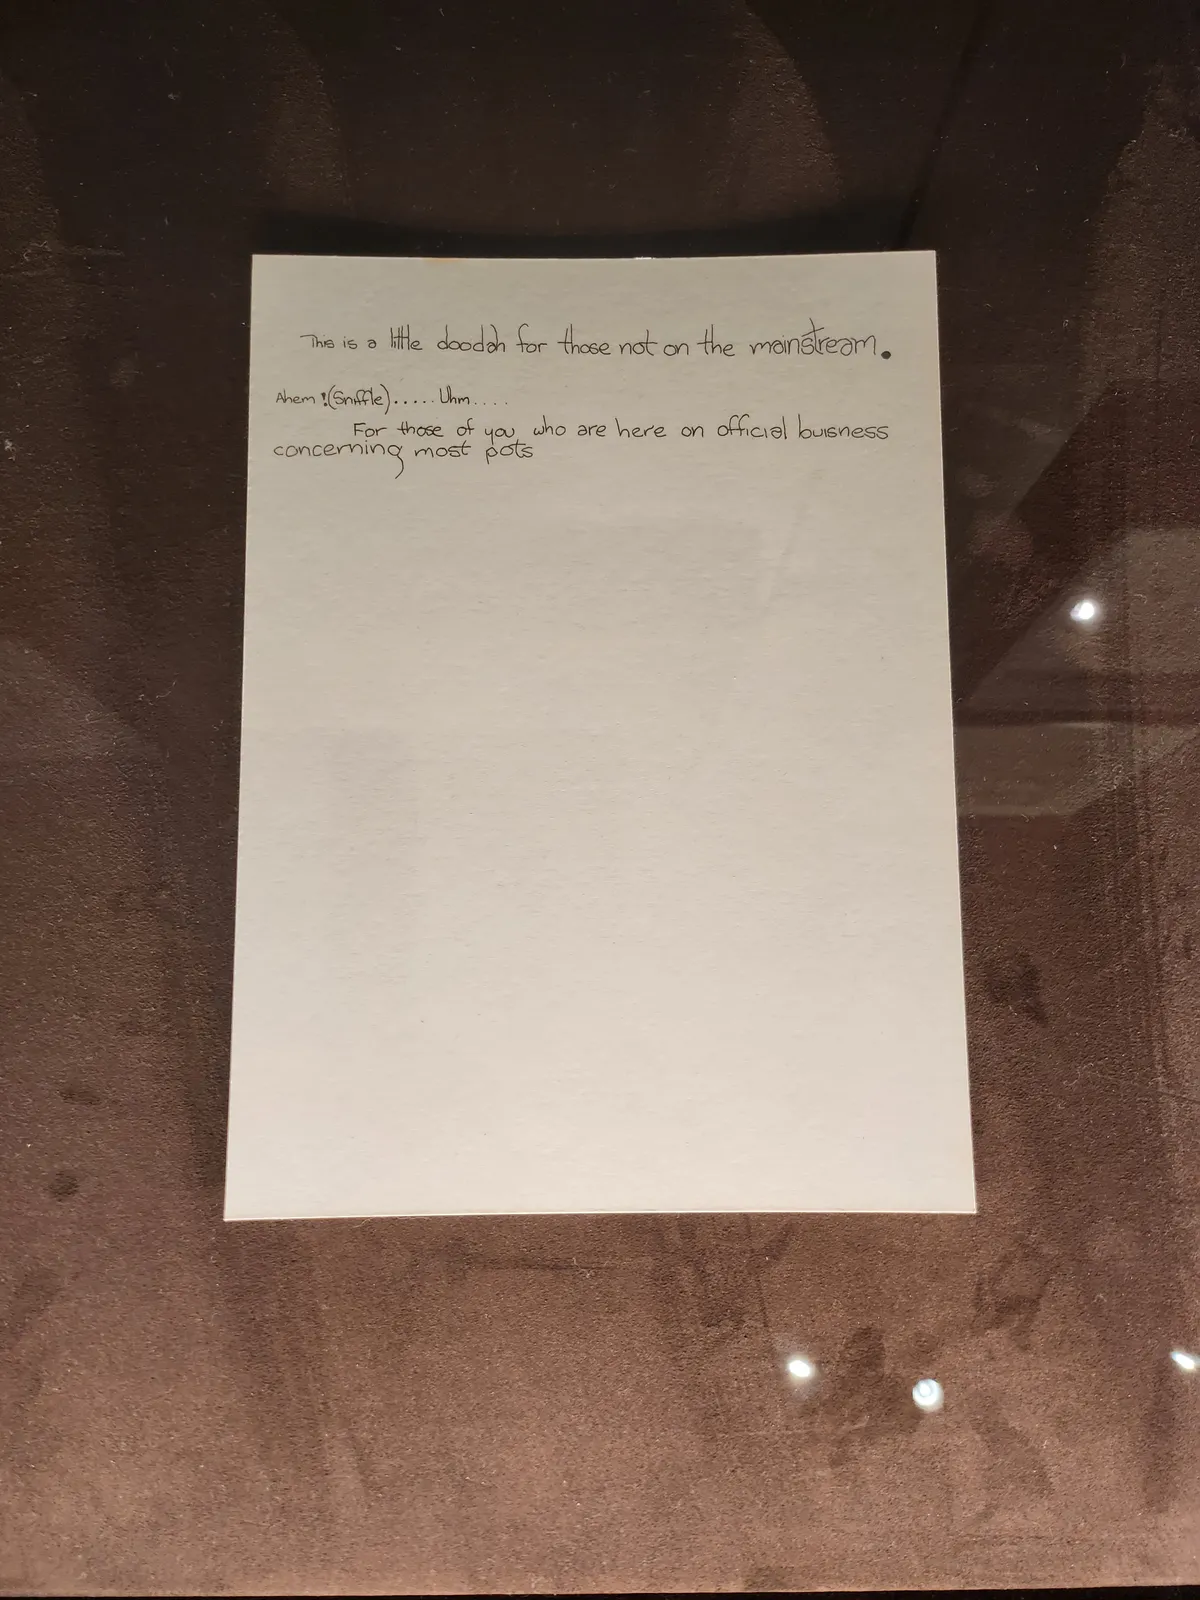 This is a little doodah for those not on the mainstream.
Ahem!(Sniffle).....Uhm....
For those of you, who are here on official buisness
concerning most pots